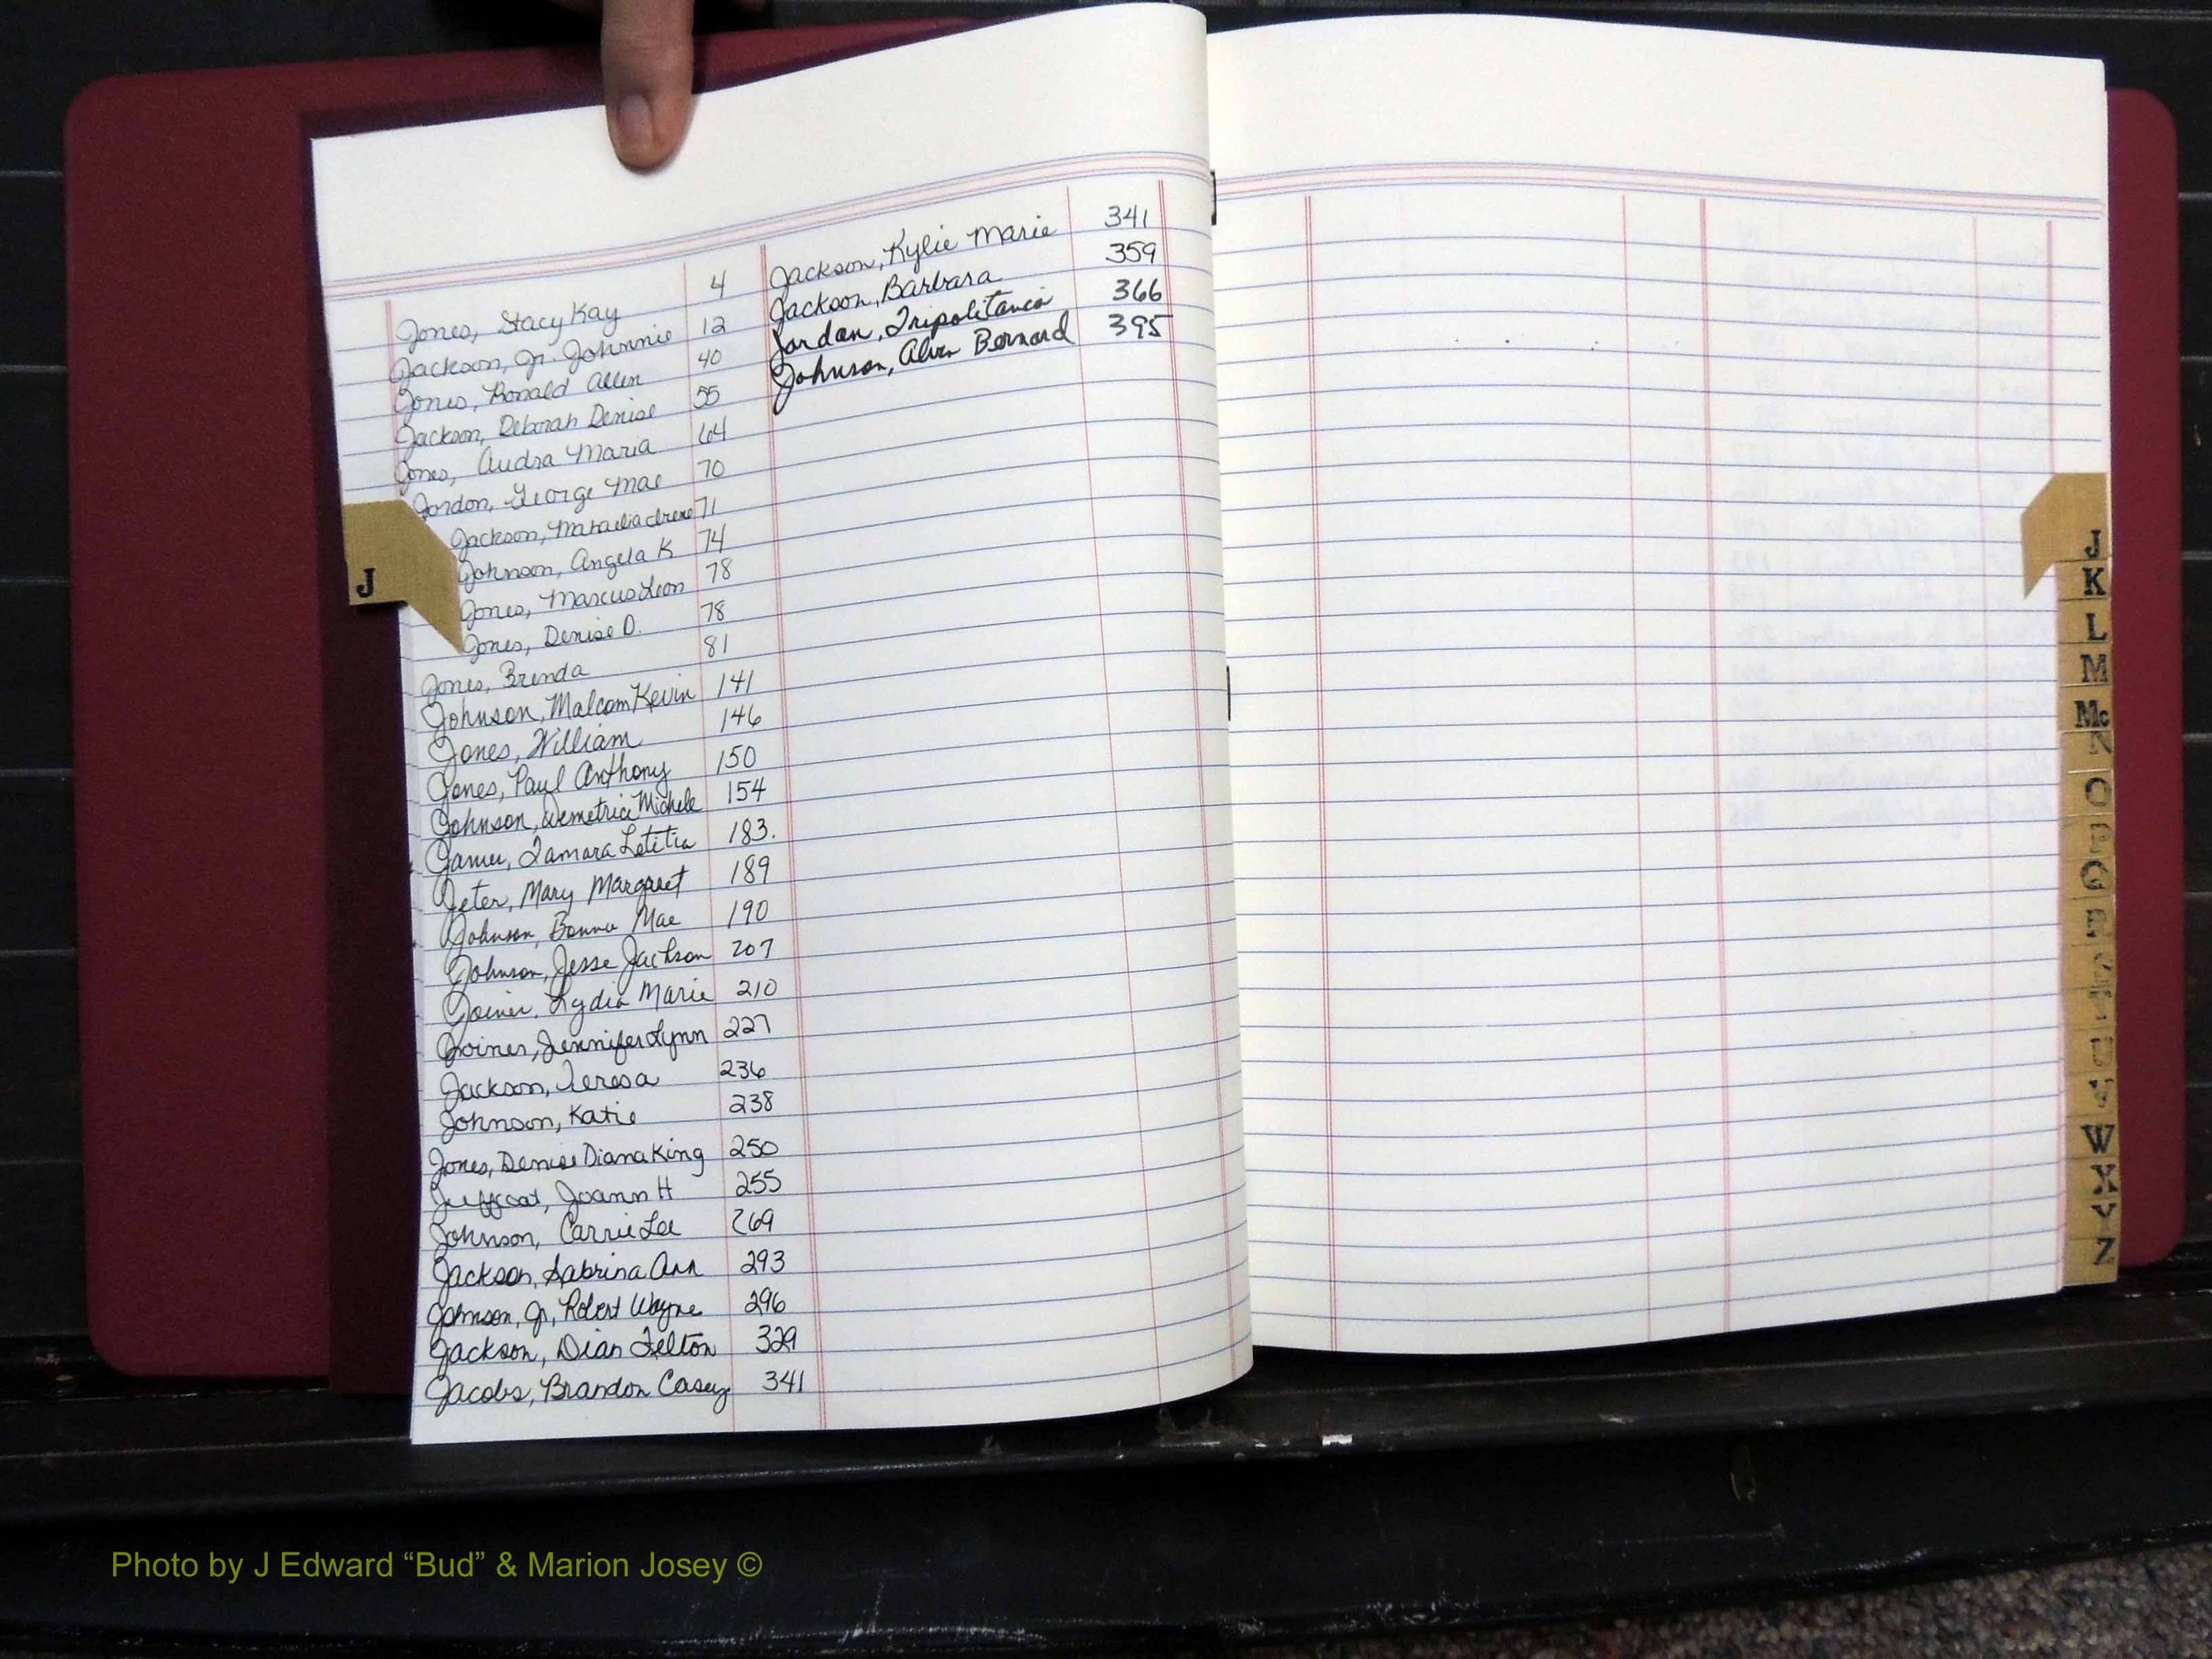 Jones, Stacy Kay 4
Jackson, Jr. Johnnie 12
Jones, Ronald Allen 40
Jackson, Deborah Denise 55
Jones, Audra Maria 64
Jordon, George Mae 70
Jackson, Irene 71
Johnson, Angela K 74
Jones, Marcus Leon 78
Jones, Denise D. 78
Jones, Brenda 81
Johnson, Malcom Kevin 141
Jones, William 146
Jones, Paul Anthony 150
Johnson, Demetrice Michele 154
Tamara Letitia 183.
Jeter, Mary Margaret 189
Johnson, Mae 190
Johnson, Jesse Jackson 207
Joiner, Lydia Marie 210
Joiner, Jennifer Lynn 227
Jackson, Teresa 236
Johnson, Katie 238
Jones, Denise Diana King 250
Jeffcoat, Joann H 255
Johnson, Carrie Lee 269
Jackson, Sabrina Ann 293
Johnson, Jr, Robert Wayne 296
Jackson, Dian Felton 329
Jacobs, Brandon Casey 341
Jackson, Kylie Marie 341
Jackson, Barbara 359
Jordan, Tripolitania 366
Johnson, Alvin Bernard 395
J
J
K
L
M
Mc
N
O
P
Q
R
S
T
U
V
W
X
Y
Z
Photo by J Edward “Bud” & Marion Josey ©